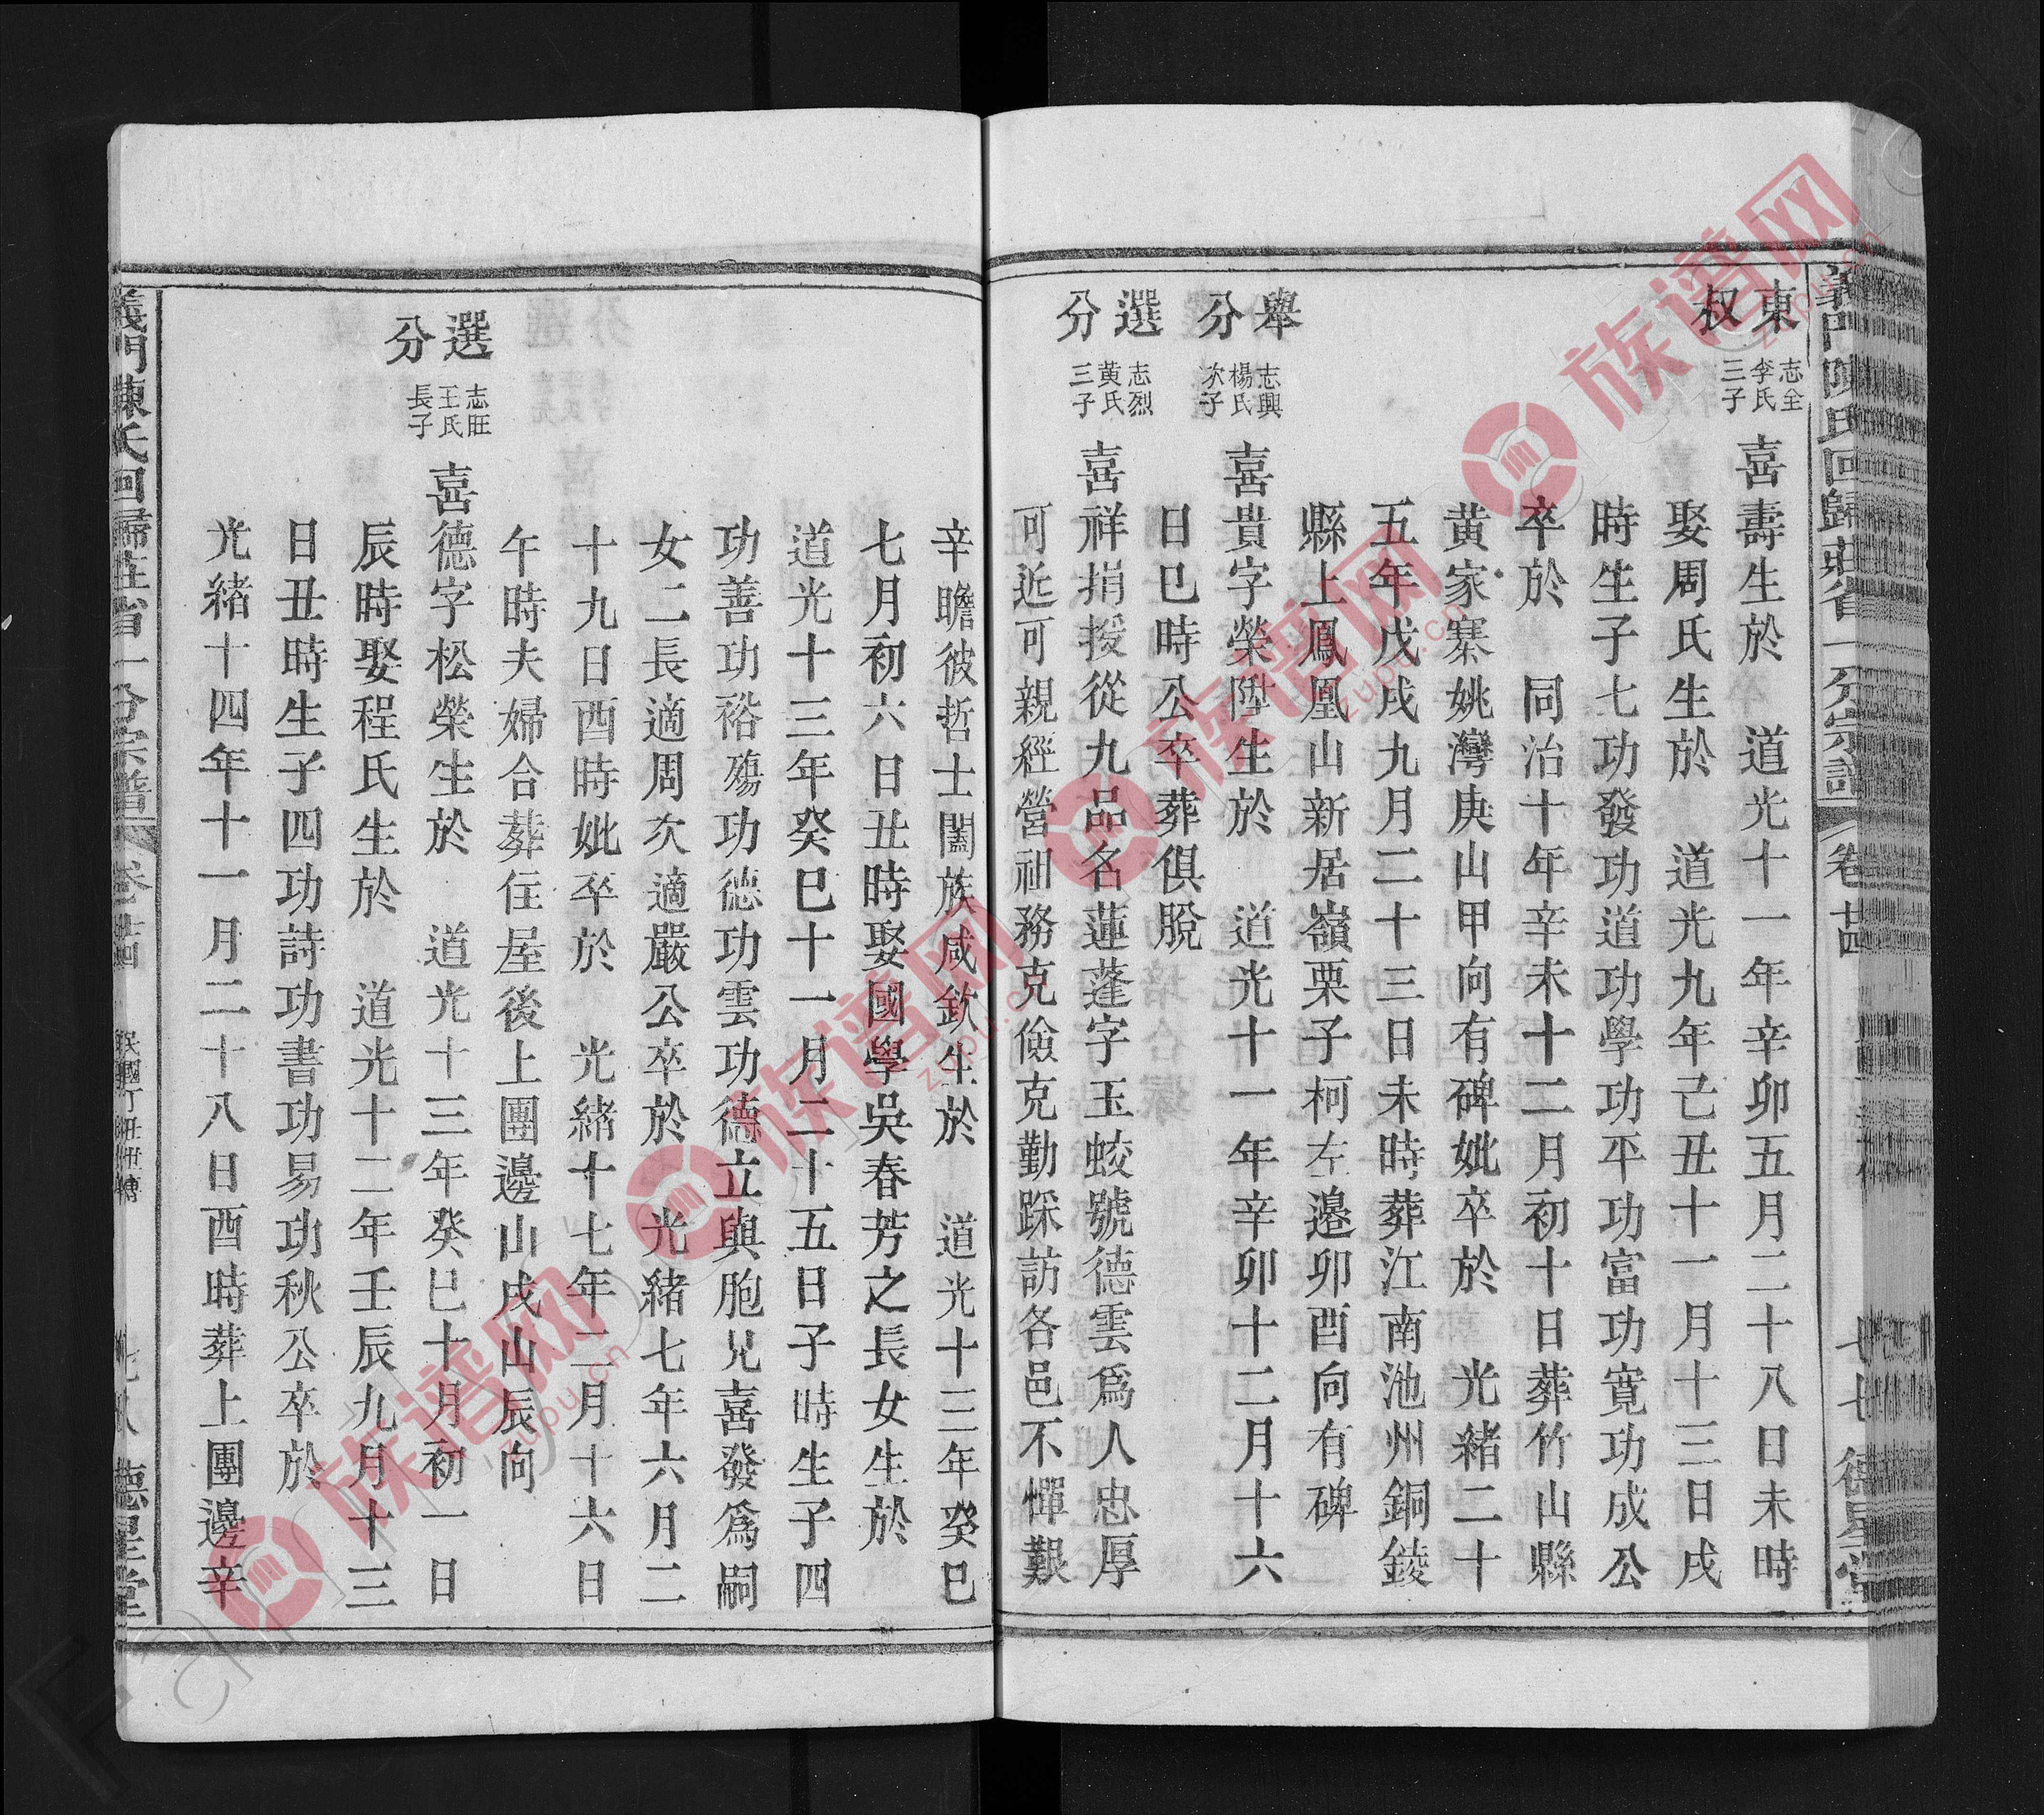 義門陳氏回歸莊省一分宗譜 卷廿四 七七 德星堂
東
权
志全
李氏
三子
喜壽生於 道光十一年辛卯五月二十八日未時
娶周氏生於 道光九年己丑十一月十三日戌
時生子七功發功道功學功平功富功寛功成公
卒於 同治十年辛未十二月初十日葬竹山縣
黄家寨姚灣庚山甲向有碑妣卒於 光緒二十
五年戊戌九月二十三日未時葬江南池州銅錂
縣上鳳凰山新居嶺栗子柯左邊卯酉向有碑
舉
分
志興
楊氏
次子
喜貴字榮陞生於 道光十一年辛卯十二月十六
日巳時公卒葬俱脫
選
分
志烈
黄氏
三子
喜祥捐授從九品名蓮蓬字玉蛟號德雲爲人忠厚
可近可親經營祖務克儉克勤踩訪各邑不憚艱
辛瞻彼哲士闔族咸欽生於 道光十三年癸巳
七月初六日丑時娶國學吳春芳之長女生於
道光十三年癸巳十一月二十五日子時生子四
功善功裕殤功德功雲功德立與胞兄喜發爲嗣
女二長適周次適嚴公卒於 光緒七年六月二
十九日酉時妣卒於 光緒十七年二月十六日
午時夫婦合葬住屋後上團邊山戌山辰向
選
分
志旺
王氏
長子
喜德字松榮生於 道光十三年癸巳十月初一日
辰時娶程氏生於 道光十二年壬辰九月十三
日丑時生子四功詩功書功易功秋公卒於
光緒十四年十一月二十八日酉時葬上團邊辛
義門陳氏回歸莊省一分宗譜 卷廿四 民國丁丑 德星堂